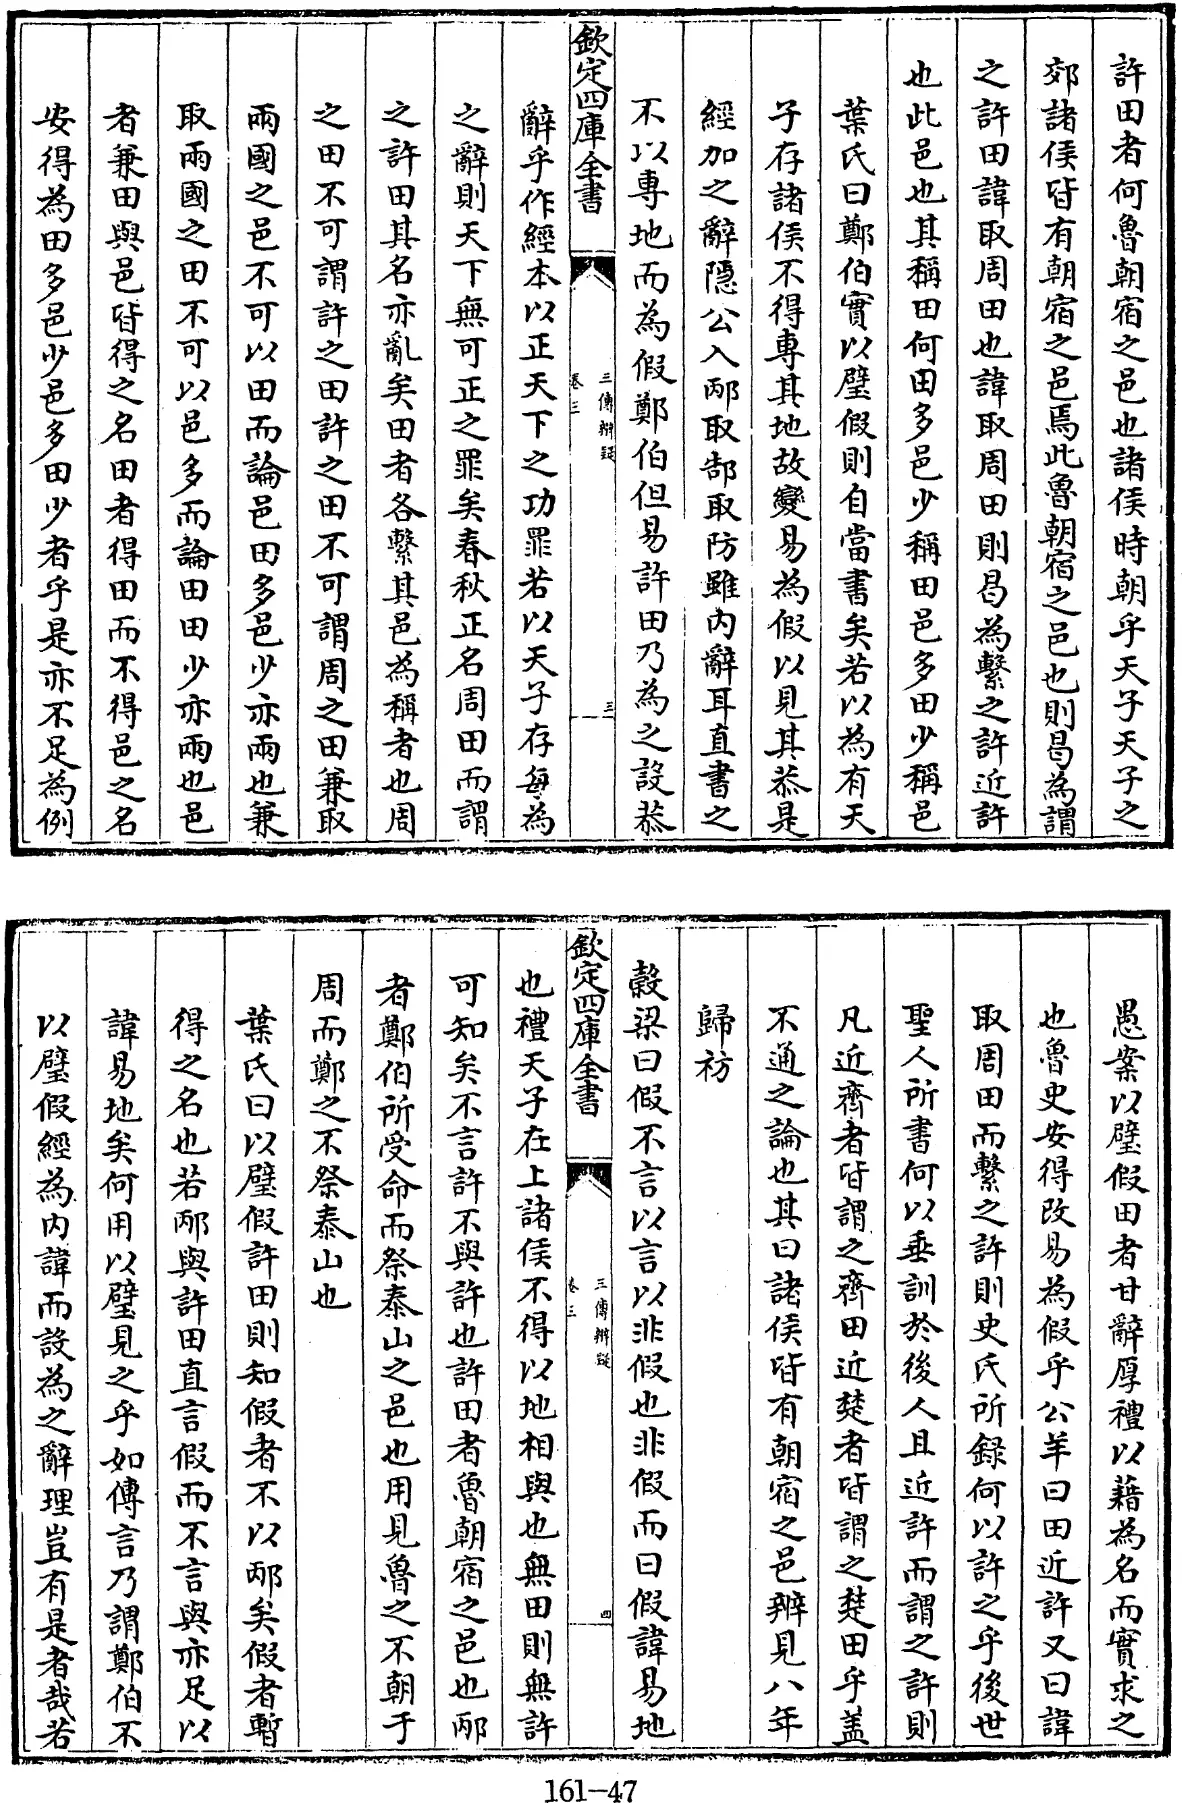 許田者何魯朝宿之邑也諸侯時朝乎天子天子之
郊諸侯皆有朝宿之邑焉此魯朝宿之邑也則曷為謂
之許田諱取周田也諱取周田則曷為繫之許近許
也此邑也其稱田何田多邑少稱田邑多田少稱邑
葉氏曰鄭伯實以璧假則自當書矣若以為有天
子存諸侯不得專其地故變易為假以見其恭是
經加之辭隱公入邴取郜取防雖内辭耳直書之
不以専地而為假鄭伯但易許田乃為之設恭
欽定四庫全書
三傳辯疑
卷三
三
辭乎作經本以正天下之功罪若以天子存每為
之辭則天下無可正之罪矣春秋正名周田而謂
之許田其名亦亂矣田者各繫其邑為稱者也周
之田不可謂許之田許之田不可謂周之田兼取
兩國之邑不可以田而論邑田多邑少亦兩也兼
取兩國之田不可以邑多而論田田少亦兩也邑
者兼田與邑皆得之名田者得田而不得邑之名
安得為田多邑少邑多田少者乎是亦不足為例
愚案以璧假田者甘辭厚禮以藉為名而實求之
也魯史安得改易為假乎公羊曰田近許又曰諱
取周田而繫之許則史氏所録何以許之乎後世
聖人所書何以垂訓於後人且近許而謂之許則
凡近齊者皆謂之齊田近楚者皆謂之楚田乎盖
不通之論也其曰諸侯皆有朝宿之邑辨見八年
歸祊
榖梁曰假不言以言以非假也非假而曰假諱易地
欽定四庫全書
三傳辯疑
卷三
四
也禮天子在上諸侯不得以地相與也無田則無許
可知矣不言許不與許也許田者魯朝宿之邑也邴
者鄭伯所受命而祭泰山之邑也用見魯之不朝于
周而鄭之不祭泰山也
葉氏曰以璧假許田則知假者不以邴矣假者暫
得之名也若邴與許田直言假而不言與亦足以
諱易地矣何用以璧見之乎如傳言乃謂鄭伯不
以璧假經為内諱而設為之辭理豈有是者哉若
161-47